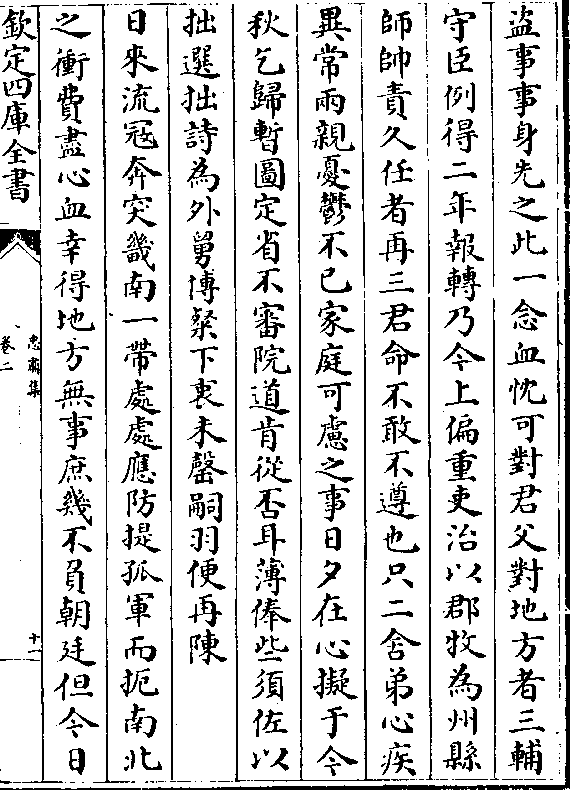 盜事事身先之此一念血忱可對君父對地方者三輔
守臣例得二年報轉乃今上偏重吏治以郡牧為州縣
師帥責久任者再三君命不敢不遵也只二舍弟心疾
異常兩親憂鬱不已家庭可慮之事日夕在心擬于今
秋乞歸暫圖定省不審院道肯從否耳薄俸些須佐以
拙選拙詩為外舅博粲下衷未罄嗣羽便再陳
日來流寇奔突畿南一帶處處應防提孤軍而扼南北
之衝費盡心血幸得地方無事庶幾不負朝廷但今日
欽定四庫全書
忠肅集
卷二
十一